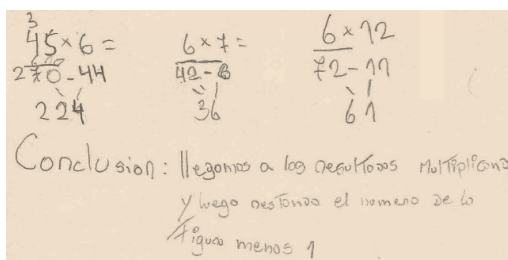 3
45 × 6 =
270 - 44
224
6 × 7 =
42 - 6
36
6 × 12
72 - 11
61
Conclusion: llegamos a los resultados multiplicando
y luego restando el numero de la
figura menos 1